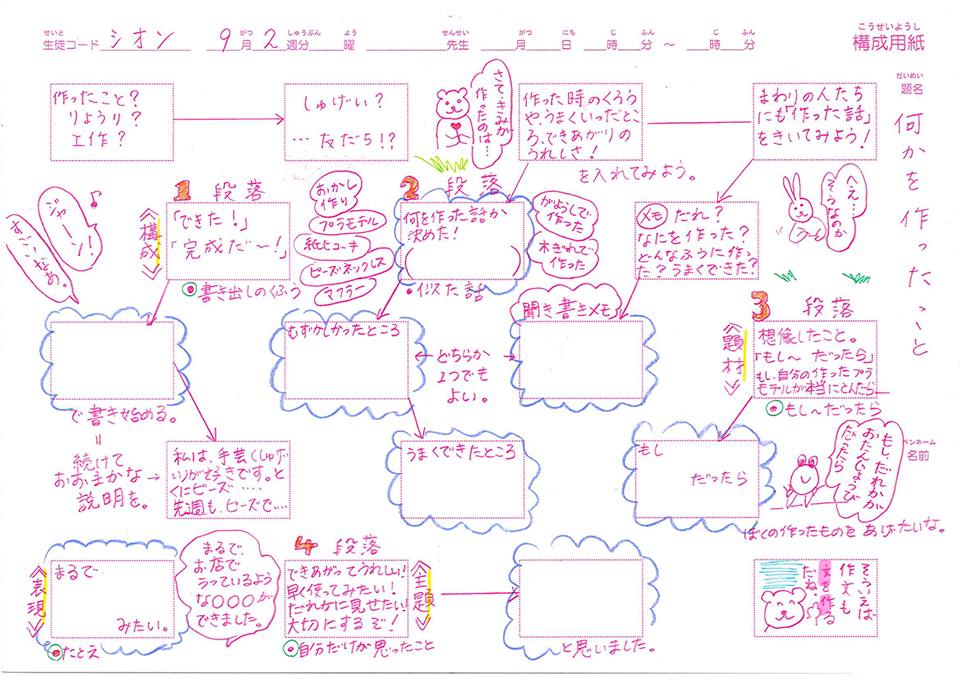 せいと
生徒コード シオン
がつ しゅうぶん よう
9月2週分 曜
せんせい
先生
がつ にち じ ふん じ ふん
月 日 時 分 ～ 時 分
こうせいようし
構成用紙
だいめい
題名
何かを作ったこと
作ったこと？
りょうり？
工作？
しゅげい？
…友だち!?
さて、きみが
作ったのは…
作った時のくろう
や、うまくいったとこ
ろ、できあがりの
うれしさ！
を入れてみよう。
まわりの人たち
にも「作った話」
をきいてみよう！
へえ…
そうなのか
1段落
《構成》
「できた！」
「完成だ～！」
◎書き出しのくふう
ジャーン！♪
すごいなあ。
おかし
作り
プラモデル
紙ヒコーキ
ビーズネックレス
マフラー
2段落
何を作った話か
決めた！
•似た話
がようしで
作った
木ぎれで
作った
メモ だれ？
なにを作った？
どんなふうに作っ
た？うまくできた？
で書き始める。
＝
続けて
おおまかな→
説明を。
私は、手芸（しゅげ
い）が好きです。と
くにビーズ……
先週も、ビーズで…
むずかしかったところ
←どちらか→
1つでも
よい。
聞き書きメモ
うまくできたところ
3段落
《題材》
想像したこと。
「もし～だったら」
もし、自分の作ったプラ
モデルが本当にとんだら
◎もし～だったら
もし
だったら
もし、だれかが
おたんじょうび
だったら
ぼくの作ったものをあげたいな。
ペンネーム
名前
《表現》
まるで
みたい。
◎たとえ
まるで、
お店で
うっているよう
な○○○が
できました。
4段落
《主題》
できあがってうれしい！
早く使ってみたい！
だれかに見せたい！
大切にするぞ！
◎自分だけが思ったこと
と思いました。
そういえば
作文も
文を作る
だね。